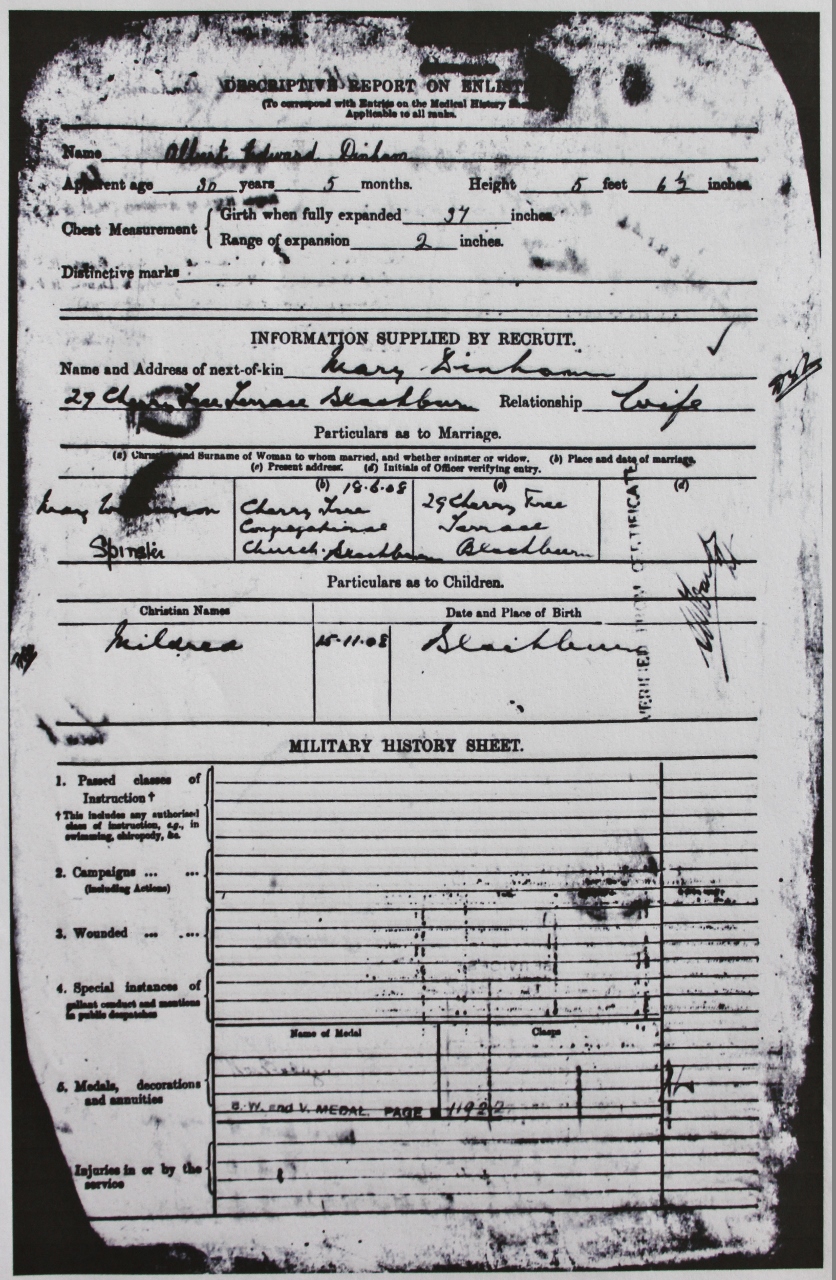 DESCRIPTIVE REPORT ON ENLIST
(To correspond with Entries on the Medical History
Applicable to all ranks.
Name Albert Edward Dinham
Apparent age 30 years 5 months. Height 5 feet 6½ inches.
Chest Measurement { Girth when fully expanded 37 inches.
Range of expansion 2 inches.
Distinctive marks
INFORMATION SUPPLIED BY RECRUIT.
Name and Address of next-of-kin Mary Dinham
29 Cherry Tree Terrace Blackburn Relationship Wife
Particulars as to Marriage.
(a) Christian and Surname of Woman to whom married, and whether spinster or widow. (b) Place and date of marriage.
(c) Present address. (d) Initials of Officer verifying entry.
(b) 18-6-08 (c) (d)
Mary Cherry Tree 29 Cherry Tree
Congregational Terrace
Spinster Church. Blackburn Blackburn
VERIFIED FROM CERTIFICATE
Particulars as to Children.
Christian Names Date and Place of Birth
Mildred 15-11-08 Blackburn
MILITARY HISTORY SHEET.
1. Passed classes of
Instruction †
† This includes any authorised
class of instruction, e.g., in
swimming, chiropody, &c.
2. Campaigns ... ...
(including Actions)
3. Wounded ... ...
4. Special instances of
gallant conduct and mentions
in public despatches
Name of Medal Clasps
5. Medals, decorations
and annuities
B.W. and V. MEDAL. PAGE
Injuries in or by the
service